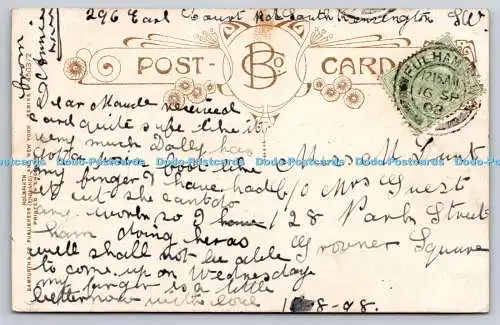 296 Earl Court Rd South Kensington SW
from
POST CARD
B Co
FULHAM
12.15AM
16 SP
08
Dear Maude received
card quite safe like it
very much Dolly has
got a
my finger I have had
it cut she cant do
any work so I have
ham doing heras
well shall not be able
to come up on Wednesday
my finger is a little
better now with love
Miss M
C/o Mrs Guest
128 Park Street
Grovner Square
8-08.
Dodo-Postcards Dodo-Postcards Dodo-Postcards Dodo-Postcards Dodo-Postcards Dodo-Postcards